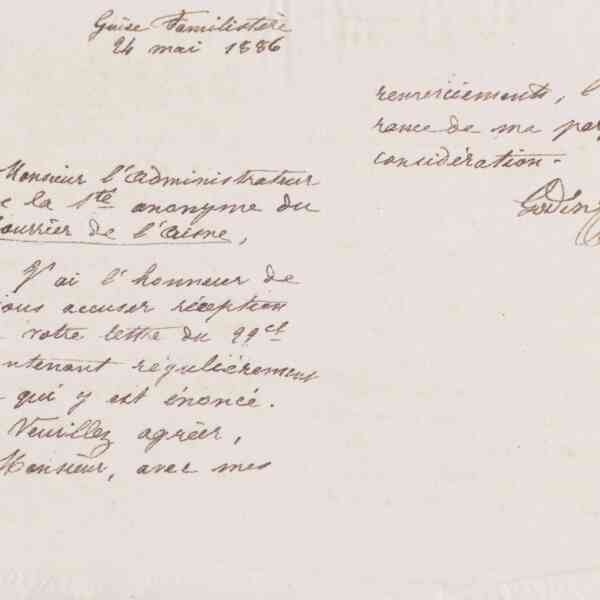 Guise Familistère
24 mai 1886
Monsieur l'administrateur
de la Sté anonyme du
Courrier de l'aisne,
J'ai l'honneur de
vous accuser réception
votre lettre du 22 ct
contenant régulièrement
qui y est énoncé.
Veuillez agréer,
Monsieur, avec mes
remerciements, l'
rance de ma par
considération.
Godin